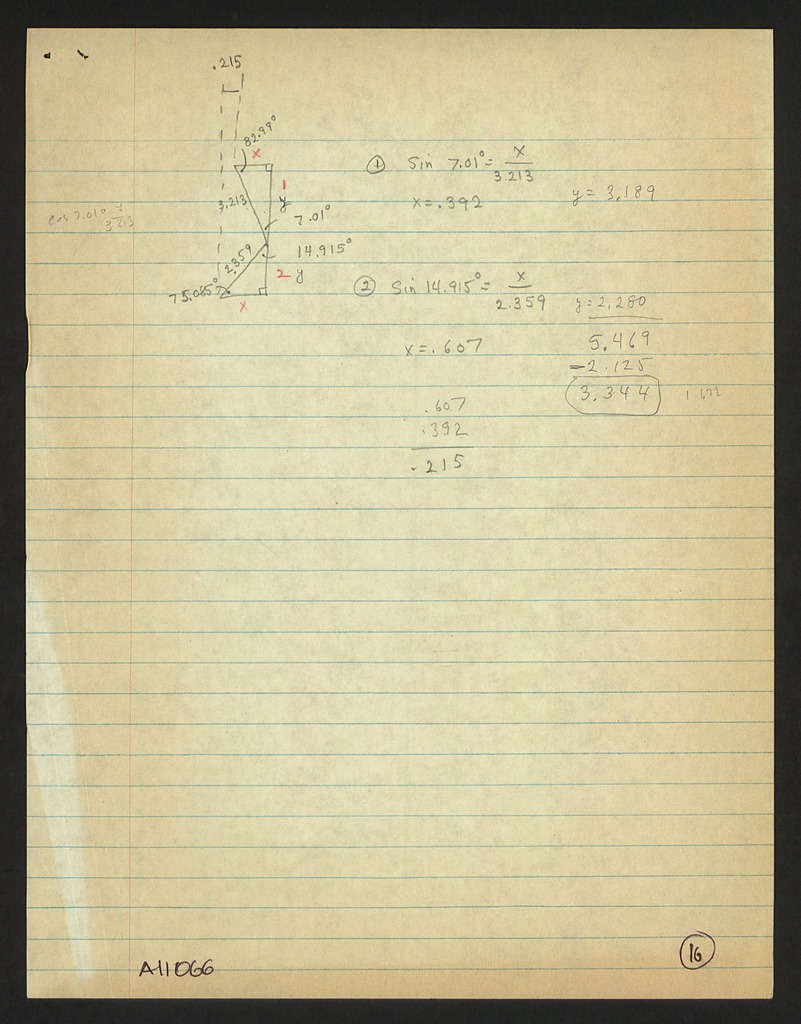 .215
82.99°
x
3.213
1
y
7.01°
2.359
14.915°
2 y
75.085°
x
cos 7.01 = y/3.213
① Sin 7.01° = x/3.213
x = .392
y = 3.189
② Sin 14.915° = x/2.359
y = 2,280
x = .607
5.469
-2.125
3.344
1.672
.607
.392
.215
A11066
16